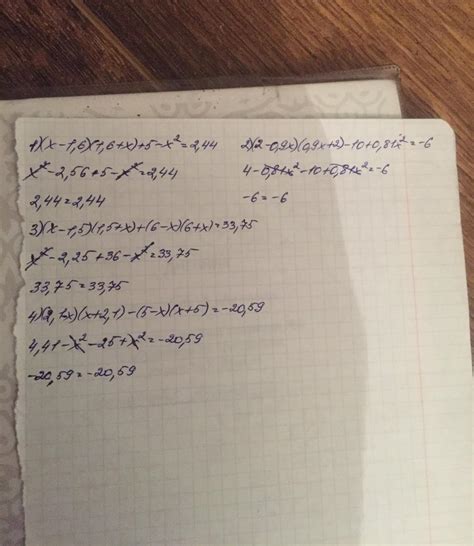 1)(x-1,6)(1,6+x)+5-x²=2,44
x²-2,56+5-x²=2,44
2,44=2,44
2)(2-0,9x)(0,9x+2)-10+0,81x²=-6
4-0,81x²-10+0,81x²=-6
-6=-6
3)(x-1,5)(1,5+x)+(6-x)(6+x)=33,75
x²-2,25+36-x²=33,75
33,75=33,75
4)(2,1-x)(x+2,1)-(5-x)(x+5)=-20,59
4,41-x²-25+x²=-20,59
-20,59=-20,59